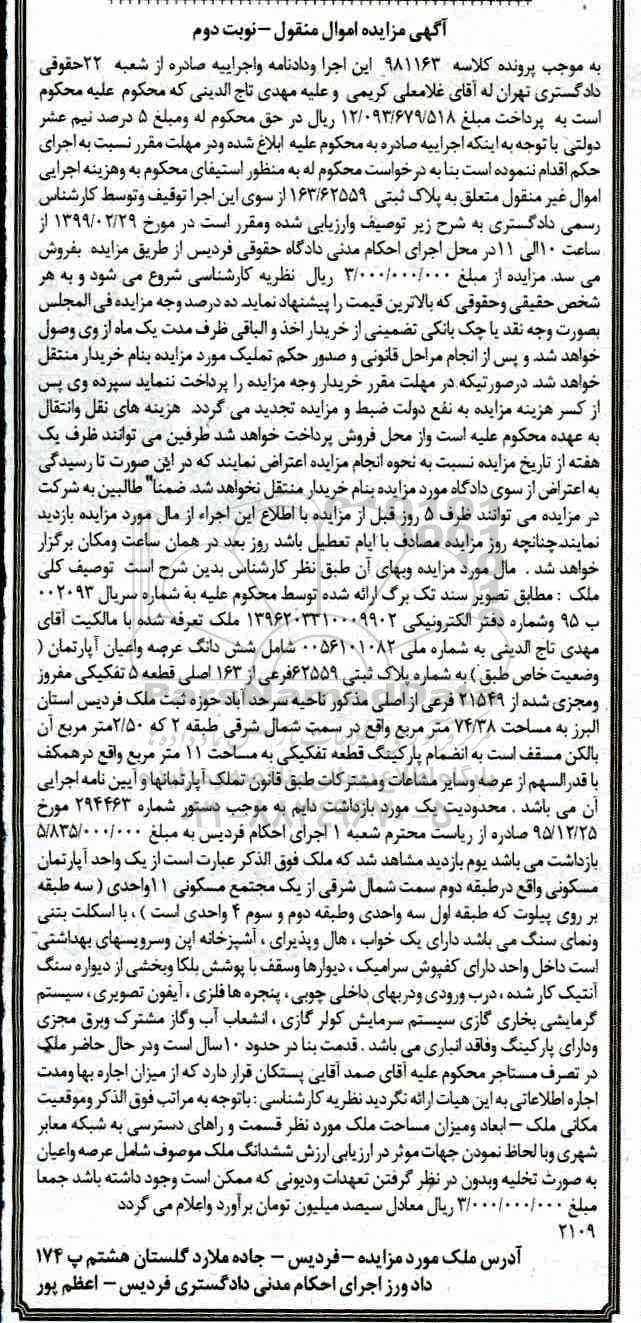 آگهی مزایده اموال منقول – نوبت دوم
به موجب پرونده کلاسه ۹۸۱۱۶۳ این اجرا ودادنامه واجراییه صادره از شعبه ۲۲حقوقی
دادگستری تهران له آقای غلامعلی کریمی و علیه مهدی تاج الدینی که محکوم علیه محکوم
است به پرداخت مبلغ ۱۲/۰۹۳/۶۷۹/۵۱۸ ریال در حق محکوم له ومبلغ ۵ درصد نیم عشر
دولتی با توجه به اینکه اجراییه صادره به محکوم علیه ابلاغ شده ودر مهلت مقرر نسبت به اجرای
حکم اقدام ننموده است بنا به درخواست محکوم له به منظور استیفای محکوم به وهزینه اجرایی
اموال غیر منقول متعلق به پلاک ثبتی ۱۶۳/۶۲۵۵۹ از سوی این اجرا توقیف وتوسط کارشناس
رسمی دادگستری به شرح زیر توصیف وارزیابی شده ومقرر است در مورخ ۱۳۹۹/۰۲/۲۹ از
ساعت ۱۰الی ۱۱در محل اجرای احکام مدنی دادگاه حقوقی فردیس از طریق مزایده بفروش
می سد. مزایده از مبلغ ۳/۰۰۰/۰۰۰/۰۰۰ ریال نظریه کارشناسی شروع می شود و به هر
شخص حقیقی وحقوقی که بالاترین قیمت را پیشنهاد نماید. ده درصد وجه مزایده فی المجلس
بصورت وجه نقد یا چک بانکی تضمینی از خریدار اخذ و الباقی ظرف مدت یک ماه از وی وصول
خواهد شد. و پس از انجام مراحل قانونی و صدور حکم تملیک مورد مزایده بنام خریدار منتقل
خواهد شد. درصورتیکه در مهلت مقرر خریدار وجه مزایده را پرداخت ننماید سپرده وی پس
از کسر هزینه مزایده به نفع دولت ضبط و مزایده تجدید می گردد. هزینه های نقل وانتقال
به عهده محکوم علیه است واز محل فروش پرداخت خواهد شد طرفین می توانند ظرف یک
هفته از تاریخ مزایده نسبت به نحوه انجام مزایده اعتراض نمایند که در این صورت تا رسیدگی
به اعتراض از سوی دادگاه مورد مزایده بنام خریدار منتقل نخواهد شد. ضمنا" طالبین به شرکت
در مزایده می توانند ظرف ۵ روز قبل از مزایده با اطلاع این اجراء از مال مورد مزایده بازدید
نمایند.چنانچه روز مزایده مصادف با ایام تعطیل باشد روز بعد در همان ساعت ومکان برگزار
خواهد شد . مال مورد مزایده وبهای آن طبق نظر کارشناس بدین شرح است توصیف کلی
ملک : مطابق تصویر سند تک برگ ارائه شده توسط محکوم علیه به شماره سریال ۰۰۲۰۹۳
ب ۹۵ وشماره دفتر الکترونیکی ۱۳۹۶۲۰۳۳۱۰۰۰۹۹۰۲ ملک تعرفه شده با مالکیت آقای
مهدی تاج الدینی به شماره ملی ۰۰۵۶۱۰۱۰۸۲ شامل شش دانگ عرصه واعیان آپارتمان (
وضعیت خاص طبق ) به شماره پلاک ثبتی ۶۲۵۵۹فرعی از ۱۶۳ اصلی قطعه ۵ تفکیکی مفروز
ومجزی شده از ۲۱۵۴۹ فرعی از اصلی مذکور ناحیه سرحد آباد حوزه ثبت ملک فردیس استان
البرز به مساحت ۷۴/۳۸ متر مربع واقع در سمت شمال شرقی طبقه ۲ که ۲/۵۰متر مربع آن
بالکن مسقف است به انضمام پارکینگ قطعه تفکیکی به مساحت ۱۱ متر مربع واقع درهمکف
با قدرالسهم از عرصه وسایر مشاعات ومشترکات طبق قانون تملک آپارتمانها و آیین نامه اجرایی
آن می باشد . محدودیت یک مورد بازداشت دایم به موجب دستور شماره ۲۹۴۴۶۳ مورخ
۹۵/۱۲/۲۵ صادره از ریاست محترم شعبه ۱ اجرای احکام فردیس به مبلغ ۵/۸۳۵/۰۰۰/۰۰۰
بازداشت می باشد یوم بازدید مشاهد شد که ملک فوق الذکر عبارت است از یک واحد آپارتمان
مسکونی واقع درطبقه دوم سمت شمال شرقی از یک مجتمع مسکونی ۱۱واحدی ( سه طبقه
بر روی پیلوت که طبقه اول سه واحدی وطبقه دوم و سوم ۴ واحدی است ) ، با اسکلت بتنی
ونمای سنگ می باشد دارای یک خواب ، هال وپذیرای ، آشپزخانه اپن وسرویسهای بهداشتی
است داخل واحد دارای کفپوش سرامیک ، دیوارها وسقف با پوشش بلکا وبخشی از دیواره سنگ
آنتیک کار شده ، درب ورودی ودربهای داخلی چوبی ، پنجره ها فلزی ، آیفون تصویری ، سیستم
گرمایشی بخاری گازی سیستم سرمایش کولر گازی ، انشعاب آب وگاز مشترک وبرق مجزی
ودارای پارکینگ وفاقد انباری می باشد . قدمت بنا در حدود ۱۰سال است ودر حال حاضر ملک
در تصرف مستاجر محکوم علیه آقای صمد آقایی پستکان قرار دارد که از میزان اجاره بها ومدت
اجاره اطلاعاتی به این هیات ارائه نگردید نظریه کارشناسی : باتوجه به مراتب فوق الذکر وموقعیت
مکانی ملک – ابعاد ومیزان مساحت ملک مورد نظر قسمت و راهای دسترسی به شبکه معابر
شهری وبا لحاظ نمودن جهات موثر در ارزیابی ارزش ششدانگ ملک موصوف شامل عرصه واعیان
به صورت تخلیه وبدون در نظر گرفتن تعهدات ودیونی که ممکن است وجود داشته باشد جمعا
مبلغ ۳/۰۰۰/۰۰۰/۰۰۰ ریال معادل سیصد میلیون تومان برآورد واعلام می گردد
۲۱۰۹
آدرس ملک مورد مزایده –فردیس – جاده ملارد گلستان هشتم پ ۱۷۴
دادورز اجرای احکام مدنی دادگستری فردیس – اعظم پور
ParsNamadData